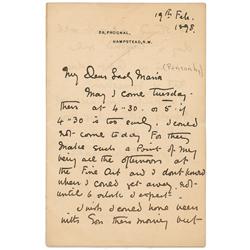 19th Feb.
1895.
39, FROGNAL,
HAMPSTEAD, N.W.
(Ponsonby)
My Dear Lady Maria
May I come Tuesday
then at 4-30. or 5 if
4-30 is too early. I could
not come to day For they
make such a Point of my
being all the afternoon at
the Fine Art and I don't know
when I could get away. not
until 6 o'clock I expect
I wish I could have been
with Son their money but